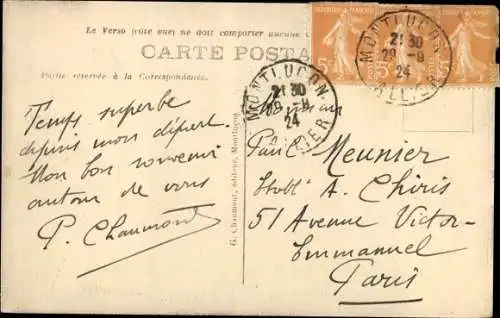 Le Verso (côté vue) ne doit comporter aucune
CARTE POSTA
Partie réservée à la Correspondance.
5c 5c 5c
MONTLUÇON
21 30
29 -8
24
ALLIER
MONTLUÇON
21 30
29 -8
24
ALLIER
Temps superbe
depuis mon départ.
Mon bon souvenir
autour de vous
P. Chaumont
G. Chaumont, éditeur, Montluçon
Monsieur
Paul Meunier
Etabts A. Chiris
51 Avenue Victor-
Emmanuel
Paris